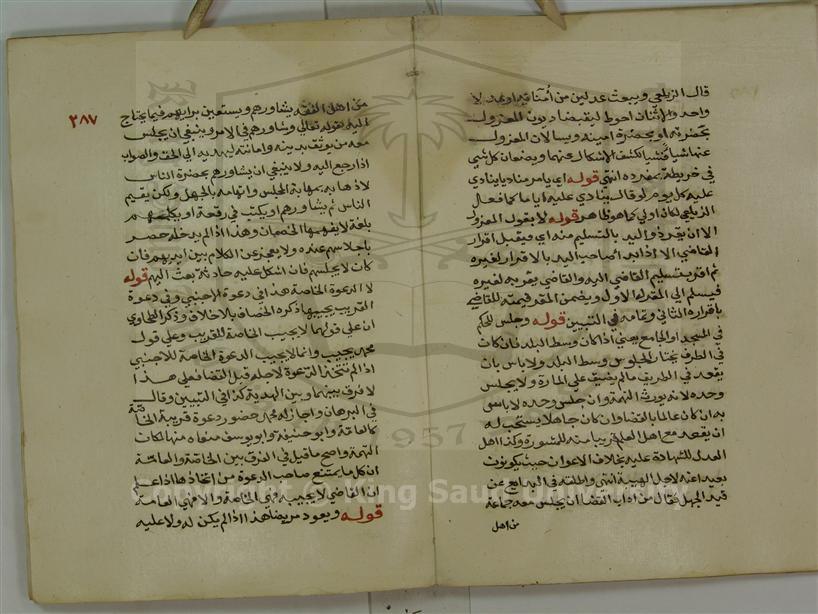 قال الزيلعي ويبعث عدلين من أمنائه او يبعد لا
واحد والاثنان احوط ليقبضا ديوان المعزول
بحضرته او بحضرة امينه ويسألان المعزول
عنها شيا فشيا لكشف الاشكال عنها ويضعان كل شي
في خريطة بمفرده انتهى قوله اي يامر مناديا ينادي
عليه كل يوم لو قال ينادي عليه اياما كما فعل
الزيلعي لكان اولى كما هو ظاهر قوله لا بقول المعزول
الا ان يقر ذو اليد بالتسليم منه اي فيقبل اقرار
القاضي الا اذا بدا صاحب اليد بالاقرار لغيره
ثم اقر بتسليم القاضي اليه والقاضي يقر به لغيره
فيسلم الى المقر له الاول ويضمن المقر قيمته للقاضي
باقراره الثاني وتمامه في التبيين قوله وجلس للحكم
في المسجد او الجامع يعني اذا كان وسط البلد فان كان
في الطرف يختار الجلوس وسط البلد ولا باس بان
يقعد في الطريق مالم يضيق على المارة ولا يجلس
وحده لانه يورث التهمة وان جلس وحده لا باس
به ان كان عالما بالقضا وان كان جاهلا يستحب له
ان يقعد مع اهل العلم قريبا منه للمشورة وكذا اهل
العدل للشهادة عليه بخلاف الاعوان حيث يكونون
بعيدا عنه لاجل الهيبة انتهى واطلقه في البدايع عن
قيد الجهل فقال من اداب القضا ان يجلس معه جماعة
من اهل
٣٨٧
من اهل الفقه يشاورهم ويستعين برايهم فيما يحتاج
اليه لقوله تعالى وشاورهم في الامر وينبغي ان يجلس
معه من يوثق بدينه وامانته ليهديه الى الحق والصواب
اذا رجع اليه ولا ينبغي ان يشاورهم بحضرة الناس
لاذهابه بمهابة المجلس واتهامه بالجهل ولكن يقيم
الناس ثم يشاورهم او يكتب في رقعة او يكلمهم
بلغة لا يفهمها الخصمان وهذا اذا لم يدخله حصر
باجلاسهم عنده ولا يعجز عن الكلام بين ايديهم فان
كان لا يجلسهم فان اشكل عليه حادثة بعث اليهم قوله
لا الدعوة الخاصة هذا في دعوة الاجنبي وفي دعوة
القريب يجيبها ذكره الخصاف بلا خلاف وذكر الطحاوي
ان على قولهما لا يجيب الخاصة للقريب وعلى قول
محمد يجيب وانما لا يجيب الدعوة الخاصة للاجنبي
اذا لم تتخذ الدعوة لاجله قبل القضا فعلى هذا
لا فرق بينها وبين الهدية كذا في التبيين وقال
في البرهان واجاز له محمد حضور دعوة قريبه الخاصة
كالعامة وابو حنيفة وابو يوسف منعاه منها لمكان
التهمة واصح ما قيل في الفرق بين الخاصة والعامة
ان كل ما يمتنع صاحب الدعوة من اتخاذها اذا علم
ان القاضي لا يجيبه فهي الخاصة والا فهي العامة
قوله ويعود مريضا هذا اذا لم يكن له ولا عليه
1957
Copyright © King Saud University